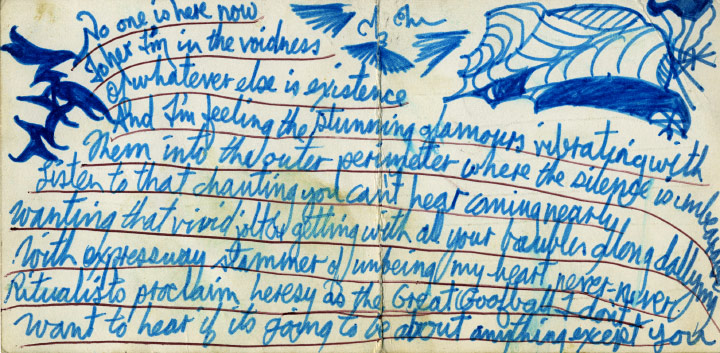 No one is here now
when I'm in the voidness
Of whatever else is existence
And I'm feeling the stunning glamours vibrating with
Them into the outer perimeter where the silence is
Listen to that chanting you can't hear coming nearly
wanting that vivid jolt of getting with all your baubles along dallying
With expressway stammer of unbeing my heart never-never
Ritualist to proclaim heresy as the Great Goofball I don't
want to hear if its going to be about anything except you